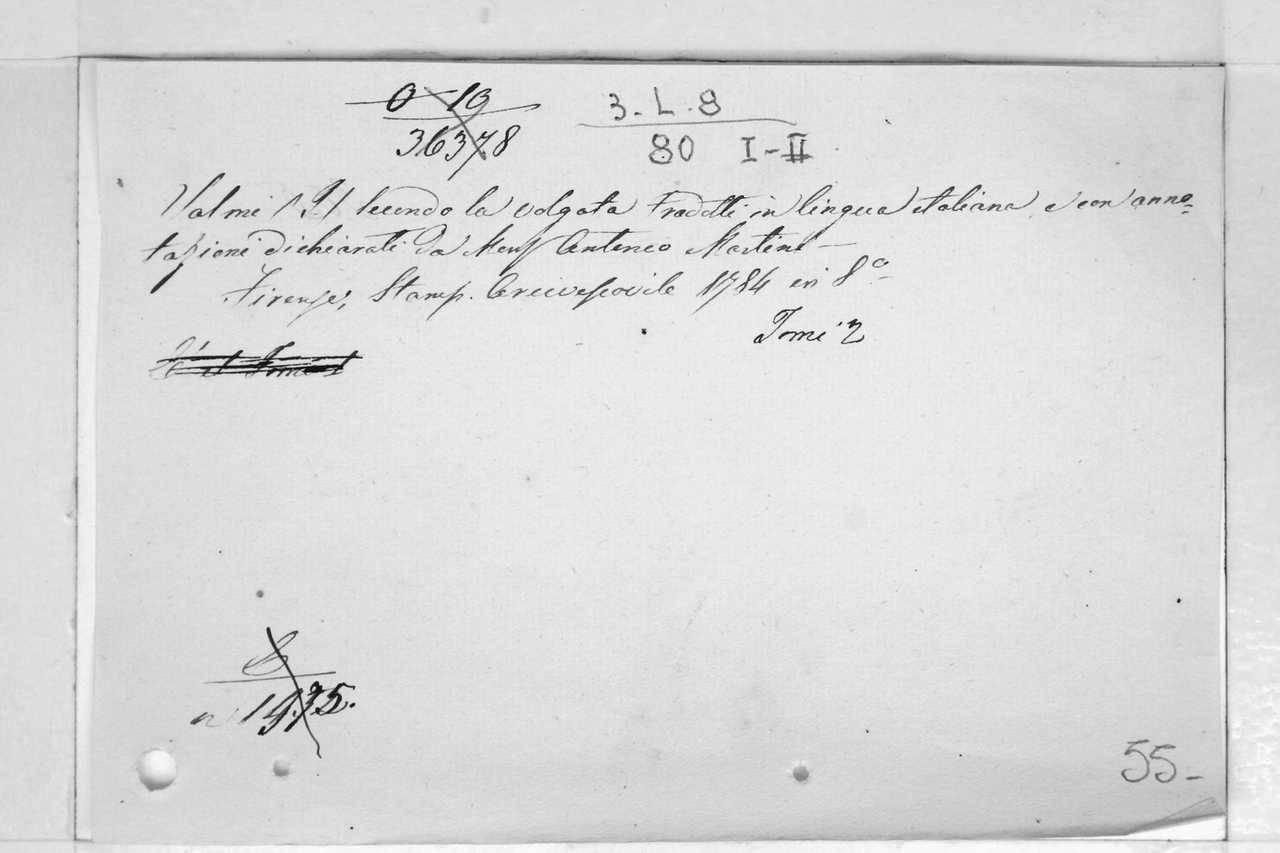 O 19
36378
3. L. 8
80 I-II
Salmi (I) secondo la volgata tradotti in lingua italiana, e con anno=
tazioni dichiarati da Mons Antonio Martini —
Firenze, Stamp. Arcivescovile 1784 in 8º
Tomi 2
n 1975.
55-